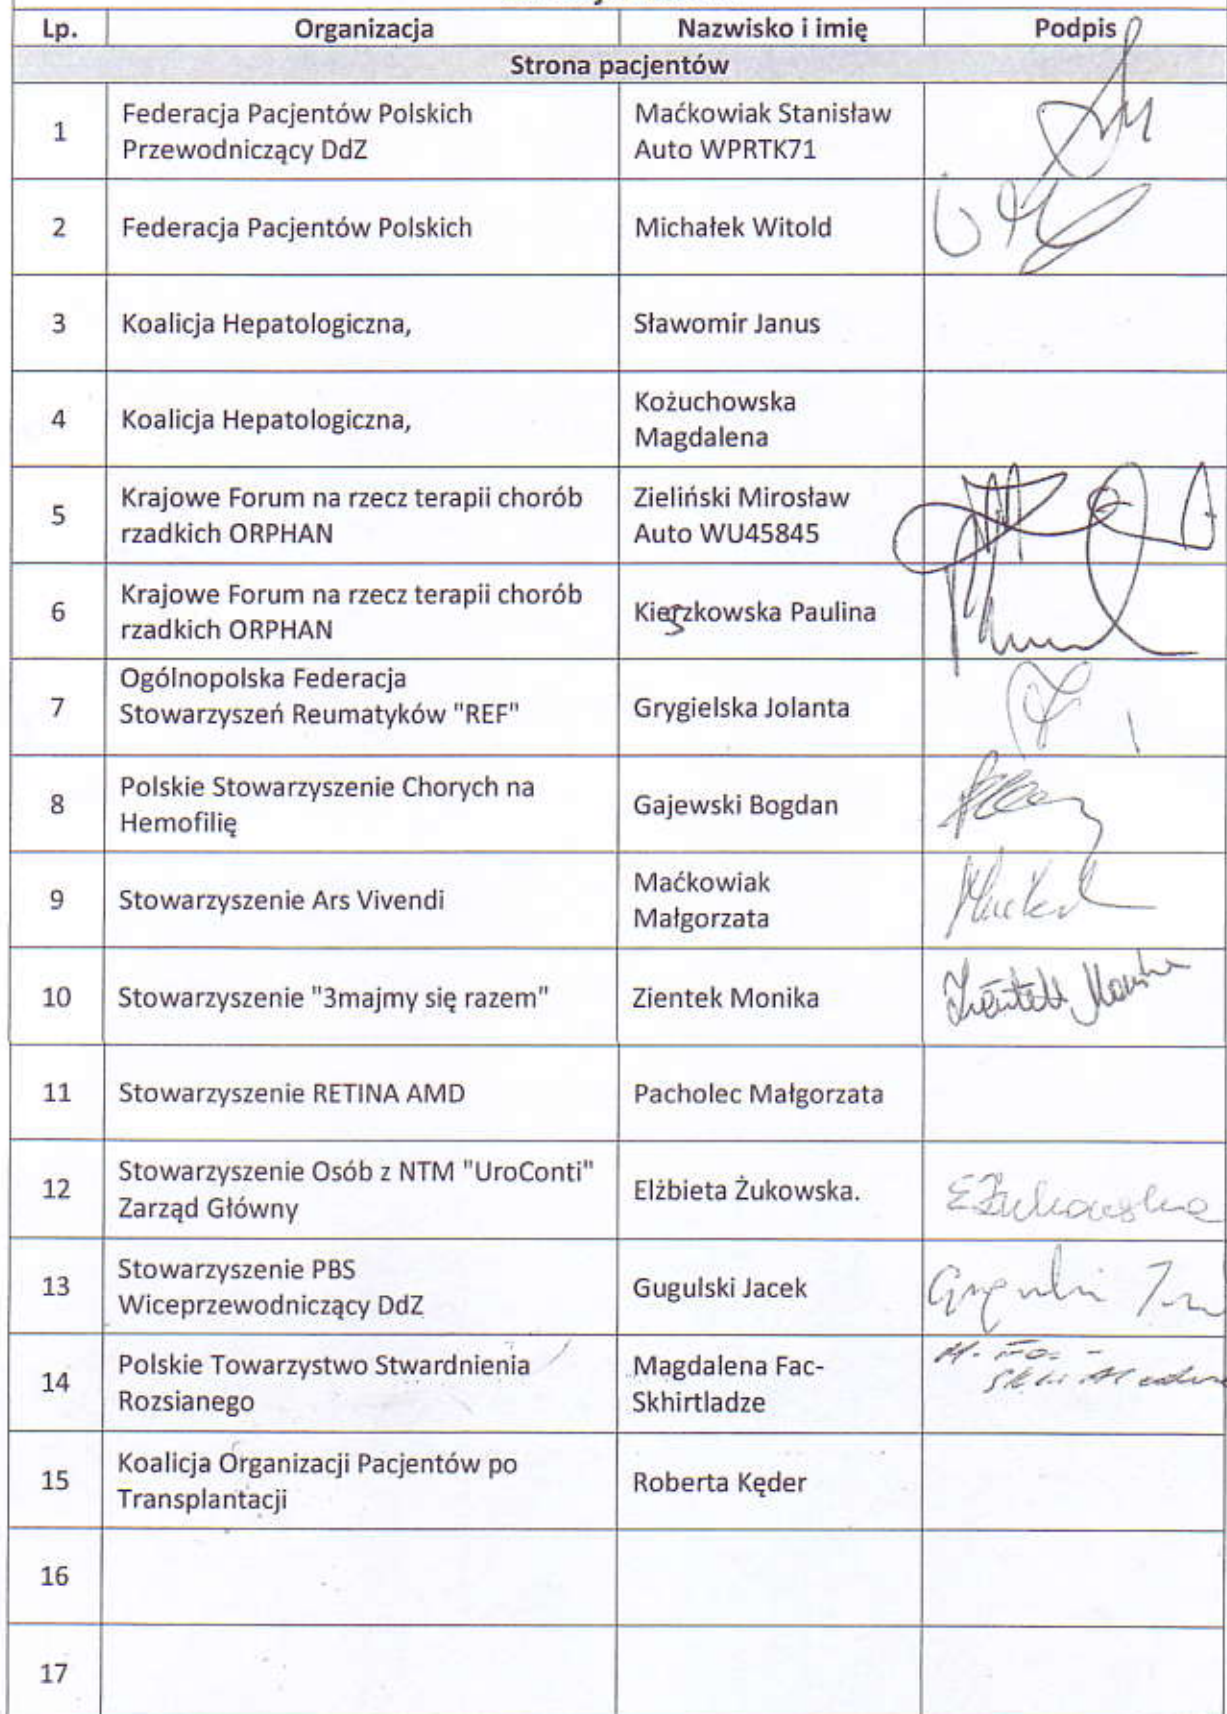 Lp. Organizacja Nazwisko i imię Podpis
Strona pacjentów
1 Federacja Pacjentów Polskich Maćkowiak Stanisław
Przewodniczący DdZ Auto WPRTK71
2 Federacja Pacjentów Polskich Michałek Witold
3 Koalicja Hepatologiczna, Sławomir Janus
4 Koalicja Hepatologiczna, Kożuchowska
Magdalena
5 Krajowe Forum na rzecz terapii chorób Zieliński Mirosław
rzadkich ORPHAN Auto WU45845
6 Krajowe Forum na rzecz terapii chorób
rzadkich ORPHAN Kierzkowska Paulina
7 Ogólnopolska Federacja
Stowarzyszeń Reumatyków "REF" Grygielska Jolanta
8 Polskie Stowarzyszenie Chorych na
Hemofilię Gajewski Bogdan
9 Stowarzyszenie Ars Vivendi Maćkowiak
Małgorzata
10 Stowarzyszenie "3majmy się razem" Zientek Monika Zientek Monika
11 Stowarzyszenie RETINA AMD Pacholec Małgorzata
12 Stowarzyszenie Osób z NTM "UroConti"
Zarząd Główny Elżbieta Żukowska. E Żukowska
13 Stowarzyszenie PBS
Wiceprzewodniczący DdZ Gugulski Jacek
14 Polskie Towarzystwo Stwardnienia Magdalena Fac- M. Fac-
Rozsianego Skhirtladze
15 Koalicja Organizacji Pacjentów po
Transplantacji Roberta Kęder
16
17